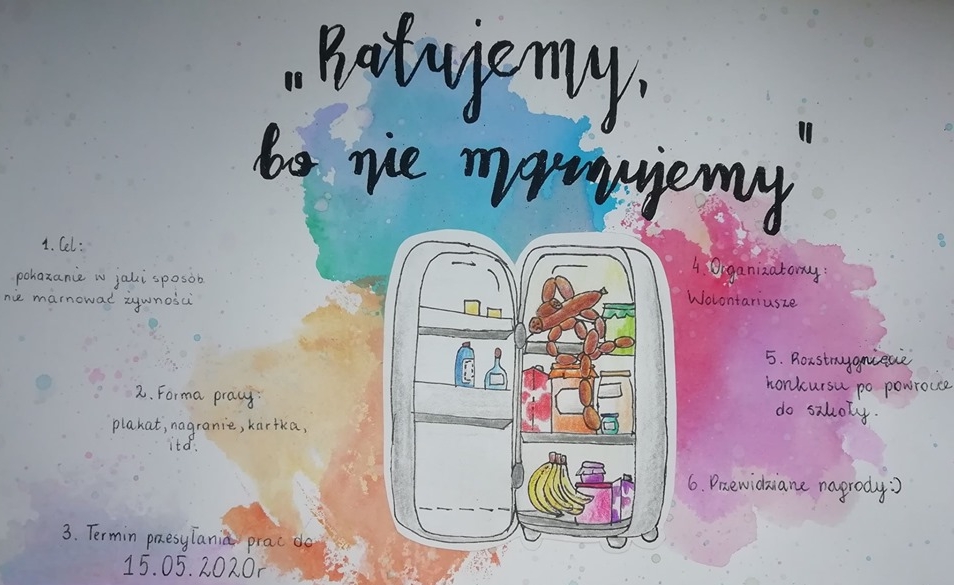 „Ratujemy,
bo nie marnujemy"
1. Cel:
pokazanie w jaki sposób
nie marnować żywności
2. Forma pracy:
plakat, nagranie, kartka,
itd.
3. Termin przesyłania prac do
15.05.2020r
4. Organizatorzy:
Wolontariusze
5. Rozstrzygnięcie
konkursu po powrocie
do szkoły.
6. Przewidziane nagrody:)